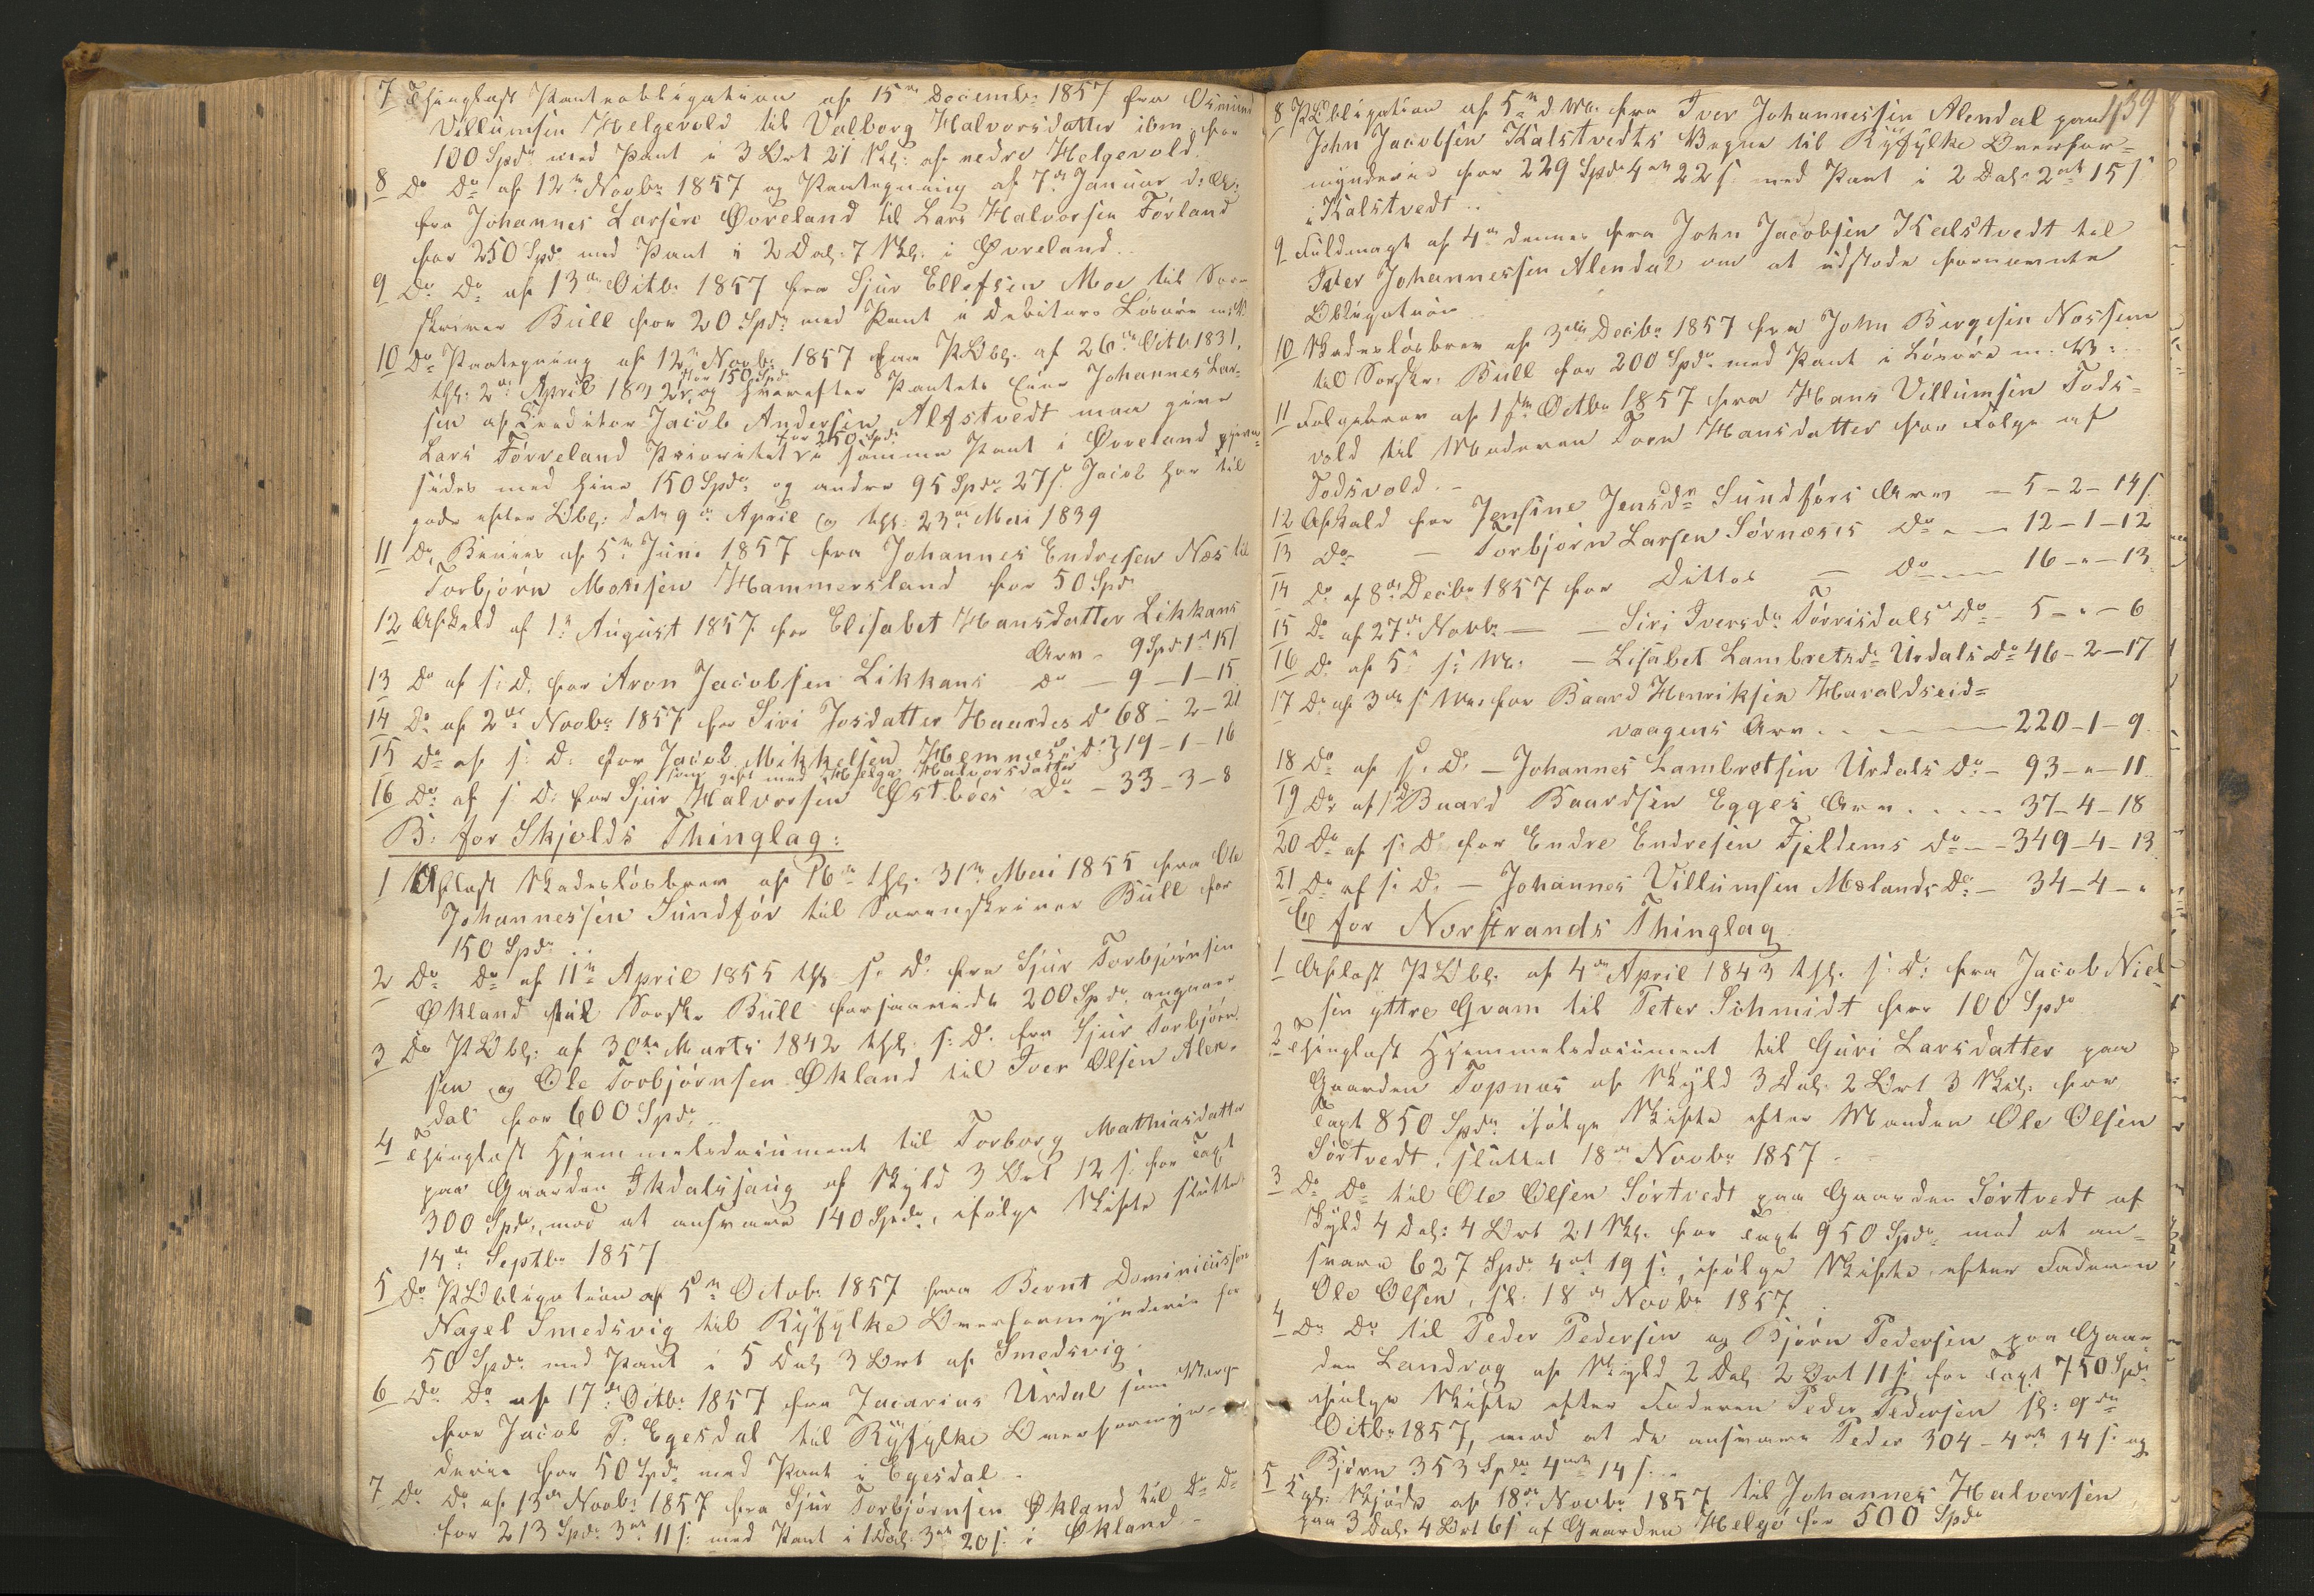 7 Thinglæst Panteobligation af 15de Decembr 1857 fra Osmund
Villumsen Helgevold til Valborg Halvorsdatter ibm. for
100 Spd. med Pant i 3 Ort 21 Skl: af nedre Helgevold.
8 Do Do af 12te Novbr 1857 og Paategning af 7de Januar d: A:
fra Johannes Larsen Øvreland til Lars Halvorsen Førland
for 250 Spd. med Pant i 2 Dal: 7 Skl. i Øvreland.
9 Do Do af 13de Octbr 1857 fra Sjur Ellefsen Moe til Soren-
skriver Bull for 20 Spd: med Pant i Debitors Løsøre m: V:
10 Do Paategning af 12te Novbr 1857 paa POblg. af 26de Octb. 1831,
thl: 2de April 1832 for 150 Spd, og hvorefter Pantets Eier Johannes Lar-
sen af Creditor Jacob Andersen Alfstvedt maa give
Lars Førreland Prioritet for 250 Spd. i samme Pant i Øvreland
sides med hine 150 Spd. og andre 95 Spd. 27 s. Jacob har til
gode efter Oblg: dat. 9de April og thl: 23de Mai 1839
11 Do Beviis af 5te Juni 1857 fra Johannes Endresen Næs til
Torbjørn Monsen Hammersland for 50 Spd.
12 Afkald af 1te August 1857 for Elisabet Hansdatter Likkans
Arv - 9 Spd 1 ort 15 s
13 Do af s: D: for Aron Jacobsen Likkans Do - 9 - 1 - 15
14 Do af 2de Novbr 1857 for Siri Josdatter Haardes Do 68 - 2 - 21
15 Do af s: D: for Jacob Mikkelsen Hemnes Do 319 - 1 - 16
som gift med Helga Halvorsdatter
16 Do af s: D: for Sjur Halvorsen Østbøes Do - 33 - 3 - 8
B: for Skjolds Thinglag:
1 Aflæst Skadesløsbrev af 16de thl. 31te Mai 1855 fra Ole
Johannessen Sundfør til Sorenskriver Bull for
150 Spd.
2 Do Do af 11te April 1855 thl. s: D: fra Sjur Torbjørnsen
Økland til Sorskr. Bull forsaavidt 200 Spd. angaaer
3 Do POblg: af 30te Marts 1842 thl. s: D: fra Sjur Torbjørn-
sen og Ole Torbjørnsen Økland til Iver Olsen Alen-
dal for 600 Spd.
4 Thinglæst Hjemmelsdocument til Torborg Mathiasdatter
paa Gaarden Ikdalssaug af Skyld 3 Ort 12 s. for Taxt
300 Spd., mod at ansvare 140 Spd., ifølge Skifte sluttet
14de Septbr 1857
5 Do PObligation af 5te Octobr 1857 fra Bernt Dominicussen
Nagel Smedsvig til Ryfylke Overformynderie for
50 Spd. med Pant i 5 Dal. 3 Ort af Smedsvig.
6 Do Do af 17de Octbr 1857 fra Zacarias Urdal som Værge
for Jacob P: Egesdal til Ryfylke Overformyn-
derie for 50 Spd. med Pant i Egesdal.
7 Do Do af 13de Novbr 1857 fra Sjur Torbjørnsen Økland til Do Do
for 213 Spd. 3 ort 11 s. med Pant i 1 Dal. 3 ort 20 s. i Økland.
139
8 PObligation af 5te d. M. fra Iver Johannessen Alendal paa
John Jacobsen Kalstvedts Vegne til Ryfylke Overfor-
mynderie for 229 Spd. 4 ort 22 s. med Pant i 2 Dal. 2 ort 15 s.
i Kalstvedt.
9 Fuldmagt af 4de dennes fra John Jacobsen Kalstvedt til
Iver Johannessen Alendal om at udstede fornævnte
Obligation
10 Skadesløsbrev af 3die Decbr 1857 fra John Bergesen Nossum
til Sorskr. Bull for 200 Spd. med Pant i Løsøre m. V.
11 Følgebrev af 1ste Octbr 1857 fra Hans Villumsen Tods-
vold til Moderen Toen Hansdatter for Følge af
Todsvold.
12 Afkald for Jensine Jensdr Sundførs Arv - 5 - 2 - 14 s.
13 Do - Torbjørn Larsen Sørnæsis Do - 12 - 1 - 12
14 Do af 8de Decbr 1857 for Dittos - Do - 16 - " - 13
15 Do af 27de Novbr - - Siri Iversdr Tørrisdals Do - 5 - " - 6
16 Do af 5te s: M: - Lisabet Lambretsdr Urdals Do 46 - 2 - 17
17 Do af 3die s. M: for Baard Henriksen Haraldseid-
vaagens Arv - 220 - 1 - 9
18 Do af s. D. - Johannes Lambretsen Urdals Do - 93 - " - 11
19 Do af s D Baard Baardsen Egges Arv - 37 - 4 - 18
20 Do af s. D for Endre Endresen Fjeldems Do - 349 - 4 - 13
21 Do af s. D. - Johannes Villumsen Mølands Do - 34 - 4 - "
C for Norstrands Thinglag
1 Aflæst POblg. af 4de April 1843 thl. s: D: fra Jacob Niel-
sen yttre Qvam til Peter Schmidt for 100 Spd
2 Thinglæst Hjemmelsdocument til Guri Larsdatter paa
Gaarden Topnæs af Skyld 3 Dal. 2 Ort 3 Skl. for
Taxt 850 Spd. ifølge Skifte efter Manden Ole Olsen
Sørtvedt, sluttet 18de Novbr 1857.
3 Do Do til Ole Olsen Sørtvedt paa Gaarden Sørtvedt af
Skyld 4 Dal: 4 Ort 21 Skl. for Taxt 950 Spd. mod at an-
svare 627 Spd. 4 ort 19 s:, ifølge Skifte efter Faderen
Ole Olsen, sl: 18de Novbr 1857.
4 Do Do til Peder Pedersen og Bjørn Pedersen paa Gaar-
den Landvog af Skyld 2 Dal. 2 Ort 11 s. for Taxt 750 Spd.
ifølge Skifte efter Faderen Peder Pedersen sl: 9de
Octbr 1857, mod at de ansvare Peder 304 - 4 ort 14 s. og
Bjørn 353 Spd. 4 ort 14 s.
5 Skjøde af 18de Novbr 1857 til Johannes Halvorsen
paa 3 Dal. 4 Ort 6 s af Gaarden Helgø for 500 Spd.